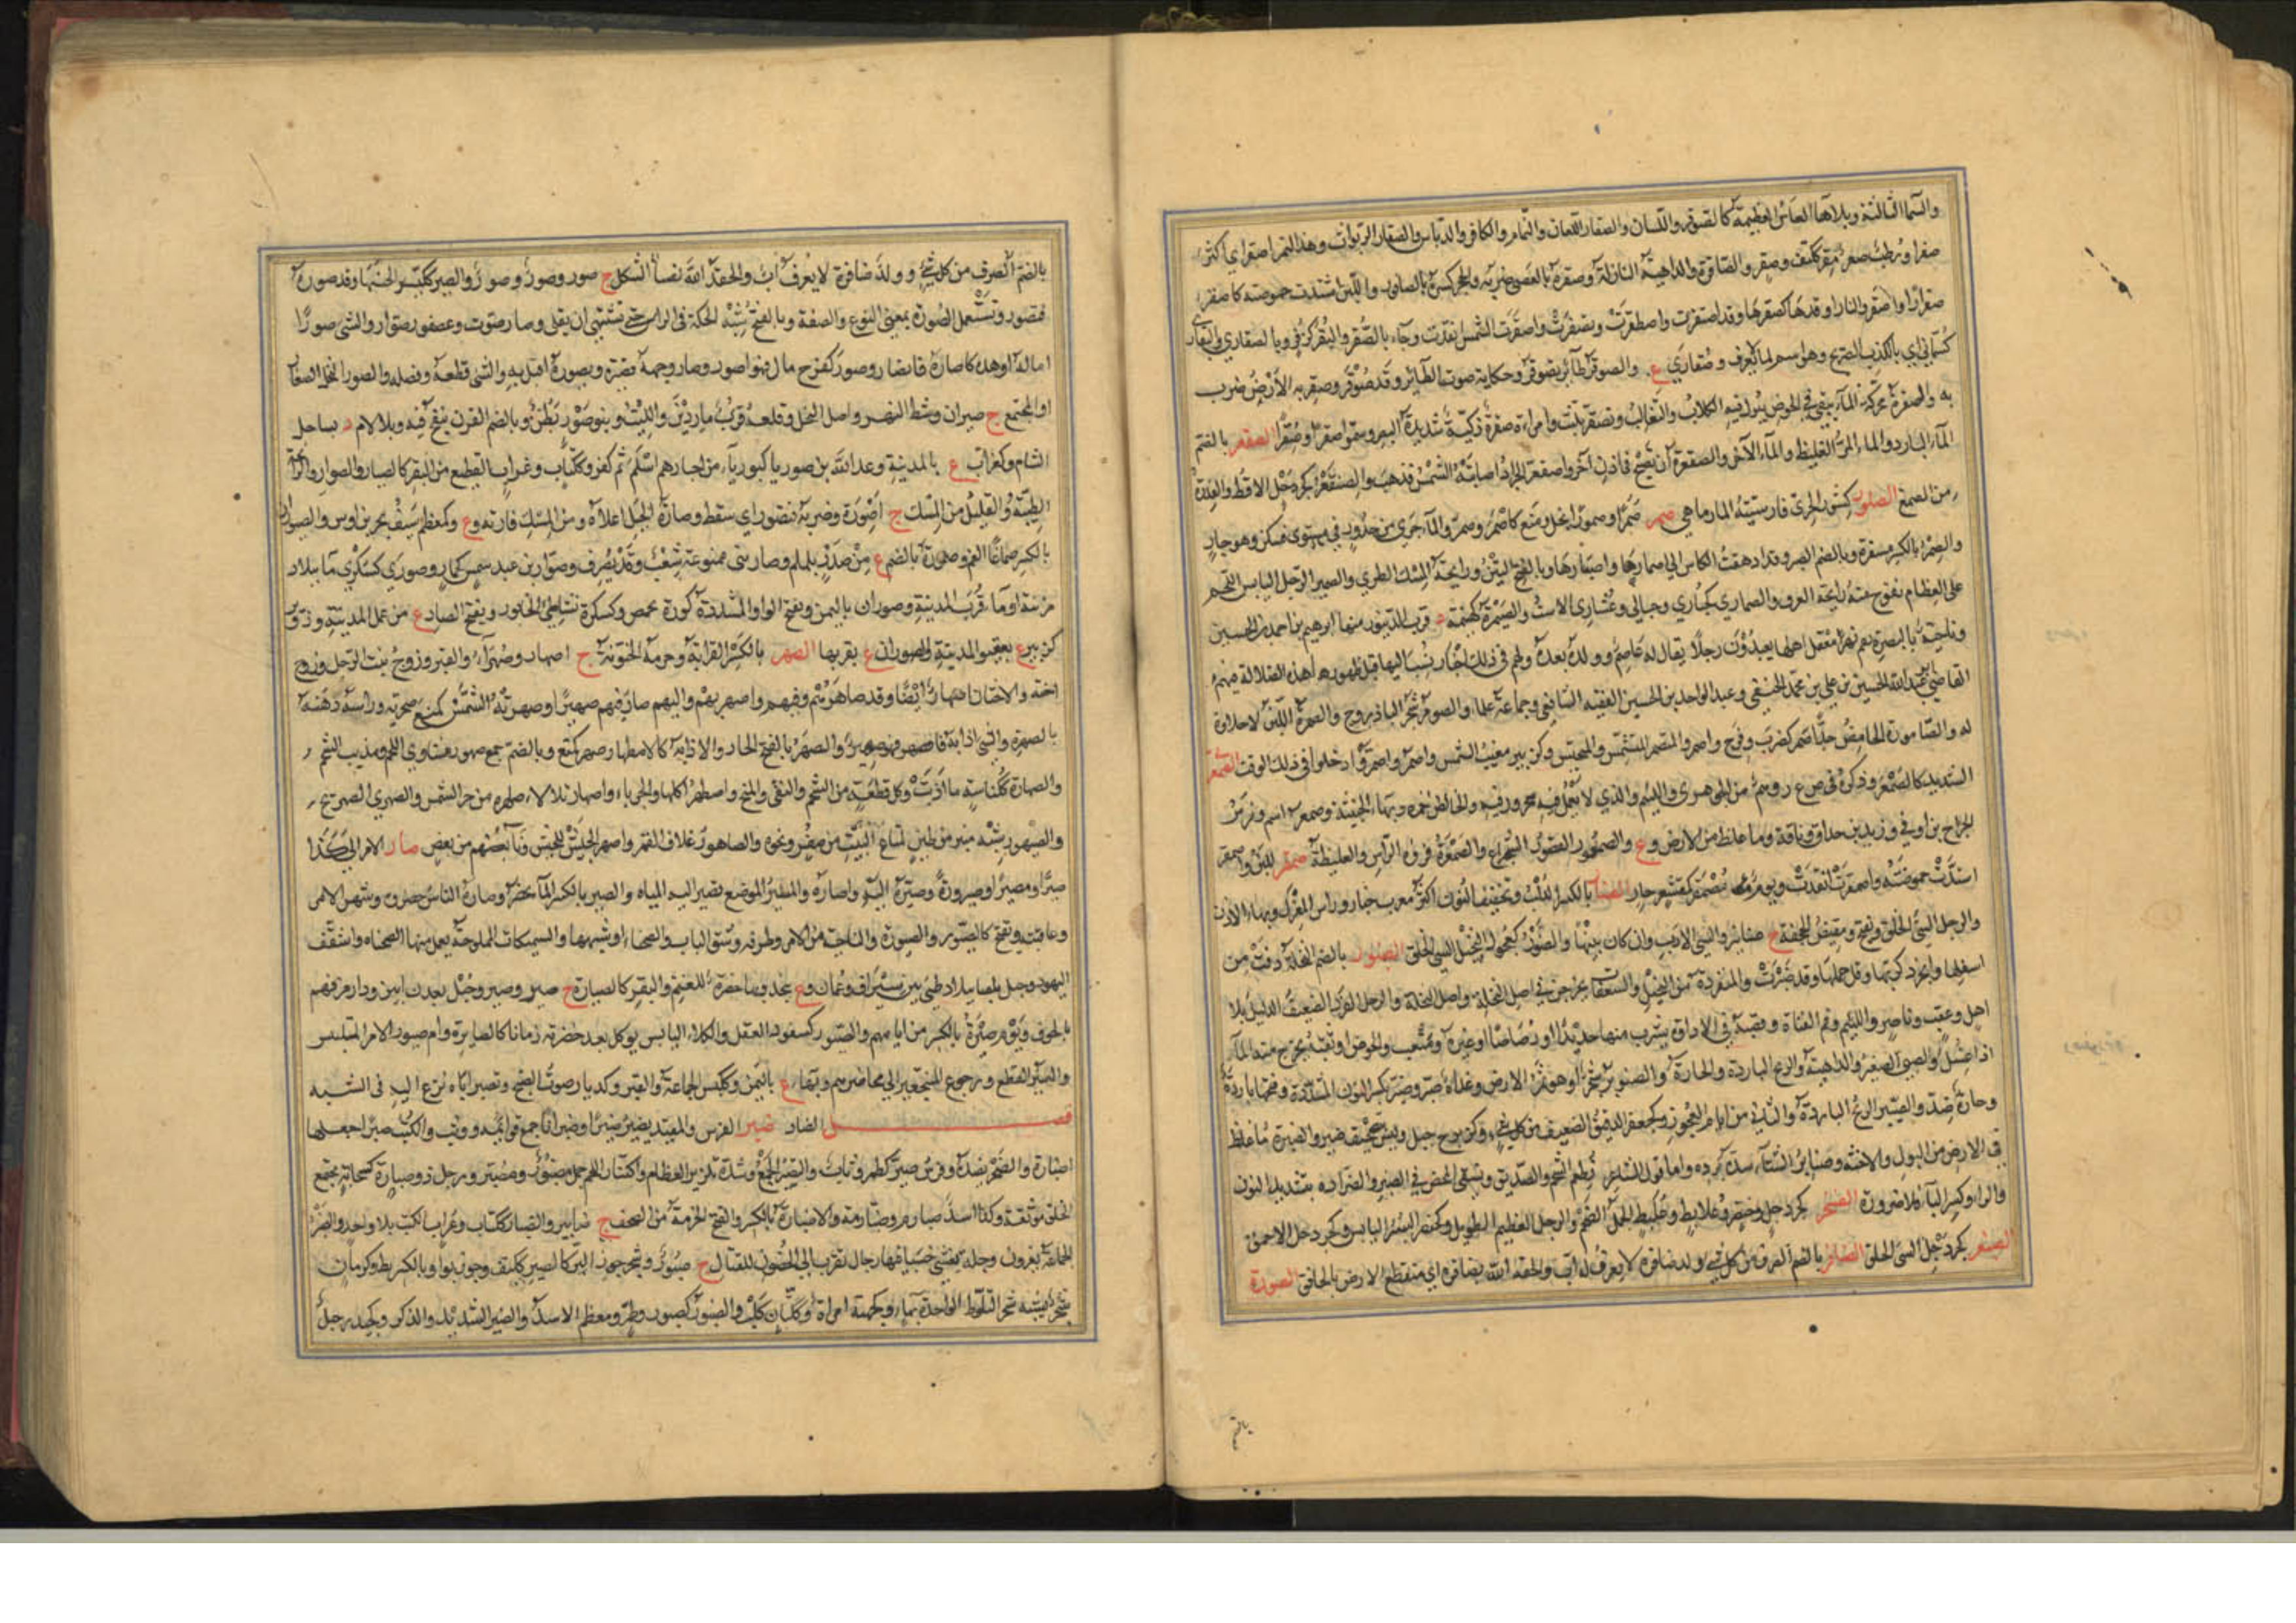 والسماء الثالثة وبلا هاء الفأس العظيمة كالصوقر واللسان والصقار اللعان والنمام والكافر والدباس والصقار الربوات وهذا التمر اصقر اي اكثر
صقرا ورطب صقر مقر ككتف وصقر والصاقرة والداهية النازلة وصقره بالعصى ضربه والحجر كسره بالصاقور واللبن اشتدت حموضته كاصقر
صقرارا واصقر والنار اوقدها كصقرها وقد اصتقرت واصطقرت وتصقرت واصقرت الشمس اتقدت وجاء بالصقر والبقر كزفر وبالصقارى والبقارى
كسمانى اي بالكذب الصريح وهو اسم لما لا يعرف وصقارى ع والصوقرير طائر يصوقر وحكاية صوت الطائر وقد صوقر وصقر به الارض ضرب
به والصقرة محركة الماء يبقى في الحوض يبول فيه الكلاب والثعالب وتصقر تلبث وامراة صقرة ذكية شديدة البصر وسموا صقرا وصقيرا الصقعر بالضم
الماء البارد والماء المر الغليظ والماء الآجن والصقعرة ان تصيح في اذن آخر واصقعر الجراد اصابته الشمس فذهب والصنقعر كجردحل الاقط والفدرة
من الصمغ الصلور كسنور الجري فارسيته المارماهي صمر صمرا وصمورا بخل ومنع كاصمر وصمر والماء جرى من حدور في مستوى فسكن وهو جار
والصمر بالكسر مستقره وبالضم الصبر وقد ادهقت الكاس الى اصمارها واصبارها وبالفتح النتن ورائحة المسك الطري والصمير الرجل اليابس اللحم
على العظام تفوح منه رايحة العرق والصمارى كحبارى وحبالى وعشارى الاست والصيمرة كهينمة د قرب الدينور منها ابرهيم بن احمد بن الحسين
وناحية بالبصرة بفم نهر معقل اهلها يعبدون رجلا يقال له عاصم وولده بعده ولهم في ذلك اخبار نسب اليها قبل ظهور هذه الضلالة فيهم
القاضي ابو عبد الله الحسين بن علي بن محمد الحنفي وعبد الواحد بن الحسين الفقيه الشافعي وجماعة علماء والصومر شجر الباذروج والصمرة اللبن لا حلاوة
له والصامورة الحامض جدا صمر كضرب وفرح واصمر والمتصمر المتشمس والمحتبس وكزبير مغيب الشمس واصمروا وصمروا دخلوا في ذلك الوقت الصمعر
الشديد كالصمعر وذكره في صع ر وهم من الجوهري واللئيم والذي لا يعمل فيه سحر ورقية والخالص الحمرة وبهاء الخبيثة وصمعر اسم وفرس
الجراح بن اوفى ويزيد بن حذاق وناقة وما غلظ من الارض وع والصمعور القصير الشجاع والصمعرة فروة الراس والغليظة صمقر اللبن واصمقر
اشتدت حموضته واصمقرت الشمس اتقدت ويوم مصمقر كمقشعر حار الصنار بالكسر الدلب وتخفيف النون اكثر معرب جنار وراس المغزل وبهاء الاذن
والرجل السيء الخلق ويفتح ومقبض الحجفة ج صنانير والسيء الادب وان كان نبيها والصنور كعجول البخيل السيء الخلق الصنبور بالضم النخلة دقت من
اسفلها وانجرد كربها وقل حملها وقد صنبرت والمنفردة من النخيل والسعفات يخرجن في اصل النخلة واصل النخلة والرجل الفرد الضعيف الذليل بلا
اهل وعقب وناصر واللئيم وفم القناة وقصبة في الاداوة يشرب منها حديدا او رصاصا او غيره ومثعب والحوض او ثقبه يخرج منه الماء
اذا غسل والصبي الصغير والداهية والريح الباردة والحارة والصنوبر شجر او هو ثمر الارض وغداة صنبر وصنبر بكسر النون المشددة وفتحها باردة
وحارة ضد والصنبر الريح الباردة والثاني من ايام العجوز وكجعفر الدقيق الضعيف من كل شيء وكزبرج جبل وليس بتصحيف ضبير والصنبرة ما غلظ
في الارض من البول والاخثاء وصنابر الشتاء شدة برده واما قول الشاعر نطعم الشحم والسديف ونسقي المحض في الصنبر والصراد بتشديد النون
والراء وكسر الباء فللضرورة الصنخر كجردحل وخنصر وعلابط وعلبط الجمل الضخم والرجل العظيم الطويل وكخنصر البسر اليابس وكجردحل الاحمق
الصنعر كجردحل السيء الخلق الصنافر بالضم الصرف من كل شيء وولد صنافرة لا يعرف له اب والحقه الله بصنافرة اي منقطع الارض بالخافق الصورة
بالضم
بالضم الصرف من كل شيء وولد صنافرة لا يعرف له اب والحقه الله نصا الشكل ج صور وصور وصور والصير ككيس الحسنها وقد صوره
فتصور وتستعمل الصورة بمعنى النوع والصفة وبالفتح شبه الحكة في الراس حتى تشتهي ان يفلى وصار صوت وعصفور صوار والشيء صورا
اماله او هده كاصاره فانصار وصور كفرح مال وهو اصور وصار وجهه يصوره ويصيره اقبل به والشيء قطعه وفصله والصور النخل الصغار
او المجتمع ج صيران وشط النهر واصل النخل وقلعة قرب ماردين والليت وبنو صور بطن وبالضم القرن ينفخ فيه وبلا لام د بساحل
الشام وكغراب ع بالمدينة وعبد الله بن صوريا كبوريا من احبارهم اسلم ثم كفر وككتاب وغراب القطيع من البقر كالصيار والصوار والرائحة
الطيبة والقليل من المسك ج اصورة وضربه فتصور اي سقط وصارة الجبل اعلاه ومن المسك فارته وع وكمعظم سيف بحير بن اوس والصوران
بالكسر صماغا الفم وصورة بالضم ع من صدر يلملم وصارى ممنوعة شعب وقد يصرف وصوار بن عبد شمس كغراب وصورى كسكرى ماء ببلاد
مزينة او ماء قرب المدينة وصوران باليمن وبفتح الواو المشددة كورة بحمص وكسكرة بشاطئ الخابور وبفتح الصاد ع من عمل المدينة وذو صوير
كزبير ع بعقيق المدينة والصوران ع بقربها الصهر بالكسر القرابة وحرمة الختونة ج اصهار وصهراء والقبر وزوج بنت الرجل وزوج
اخته والاختان اصهار ايضا وقد صاهرهم وفيهم واصهر بهم واليهم صار فيهم صهرا وصهرته الشمس كمنع صحرته وراسه دهنه
بالصهرة والشيء اذابه فانصهر فهو صهير والصهر بالفتح الحار والاذابة كالاصطهار صهر كمنع وبالضم جمع صهور لشاوي اللحم ومذيب الشحم
والصهارة ككناسة ما اذبت وكل قطعة من الشحم والنقي والمخ واصطهر اكلها والحرباء واصهار تلالا ظهره من حر الشمس والصهري الصهريج
والصيهور شبه منبر من طين لمتاع البيت من صفر ونحوه والصاهور غلاف القمر واصهر الجيش للجيش دنا بعضهم من بعض صار الامر الى كذا
صيرا ومصيرا وصيرورة وصيره اليه واصاره والمصير الموضع تصير اليه المياه والصير بالكسر الماء يحضر وصاره الناس حضروه ومنتهى الامر
وعاقبته ويفتح كالصيور والصيورة والناحية من الامر وطرفه وشق الباب والصحناة او شبهها والسميكات المملوحة يعمل منها الصحناة واسقف
اليهود وجبل باجأ ببلاد طيء بين سيراف وعمان وع بنجد وبهاء حظيرة للغنم والبقر كالصيارة ج صير وصير وجبل بعدن ابين ودارمرفهم
بالجوف ويوم صيرة بالكسر من ايامهم والصيور كسفود العقل والكلا اليابس يوكل بعد خضرته زمانا كالصايرة وام صيور الامر الملتبس
والصير القطع ورجوع المنتجعين الى محاضرهم وبهاء ع باليمن وككيس الجماعة والقبر وكديار صوت الصنج وتصير اباه نزع اليه في الشبه
فصل الضاد ضبر الفرس والمقيد يضبر ضبرا وضبرانا جمع قوائمه ووثب والكتب ضبرا جعلها
اضبارة والصخر نضده وفرس ضبر كطمر وثاب والضبر الجمع وشدة تلزيز العظام واكتناز اللحم جمل مضبور ومضبر ورجل ذو ضبارة كسحابة مجتمع
الخلق موثقه وكذا اسد ضبارم وضبارمة والاضبارة بالكسر والفتح الحزمة من الصحف ج اضابير والضبار ككتاب وغراب الكتب بلا واحد والضبر
الجماعة يغزون وجلد يغشى خشبا فيها رجال تقرب الى الحصون للقتال ج ضبور وشجر جوز البر كالضبر ككتف وجوز بوا وبالكسر الابط وكرمان
شجر يشبه شجر البلوط الواحدة بهاء وكجهينة امراة وككتان كلب والضبور كصبور وطمر ومعظم الاسد والضبير الشديد والذكر وكحيدر جبل